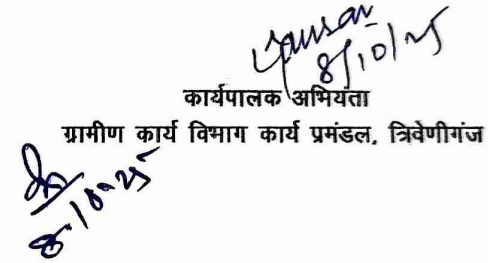 8/10/25
कार्यपालक अभियंता
ग्रामीण कार्य विभाग कार्य प्रमंडल, त्रिवेणीगंज
8.10.25